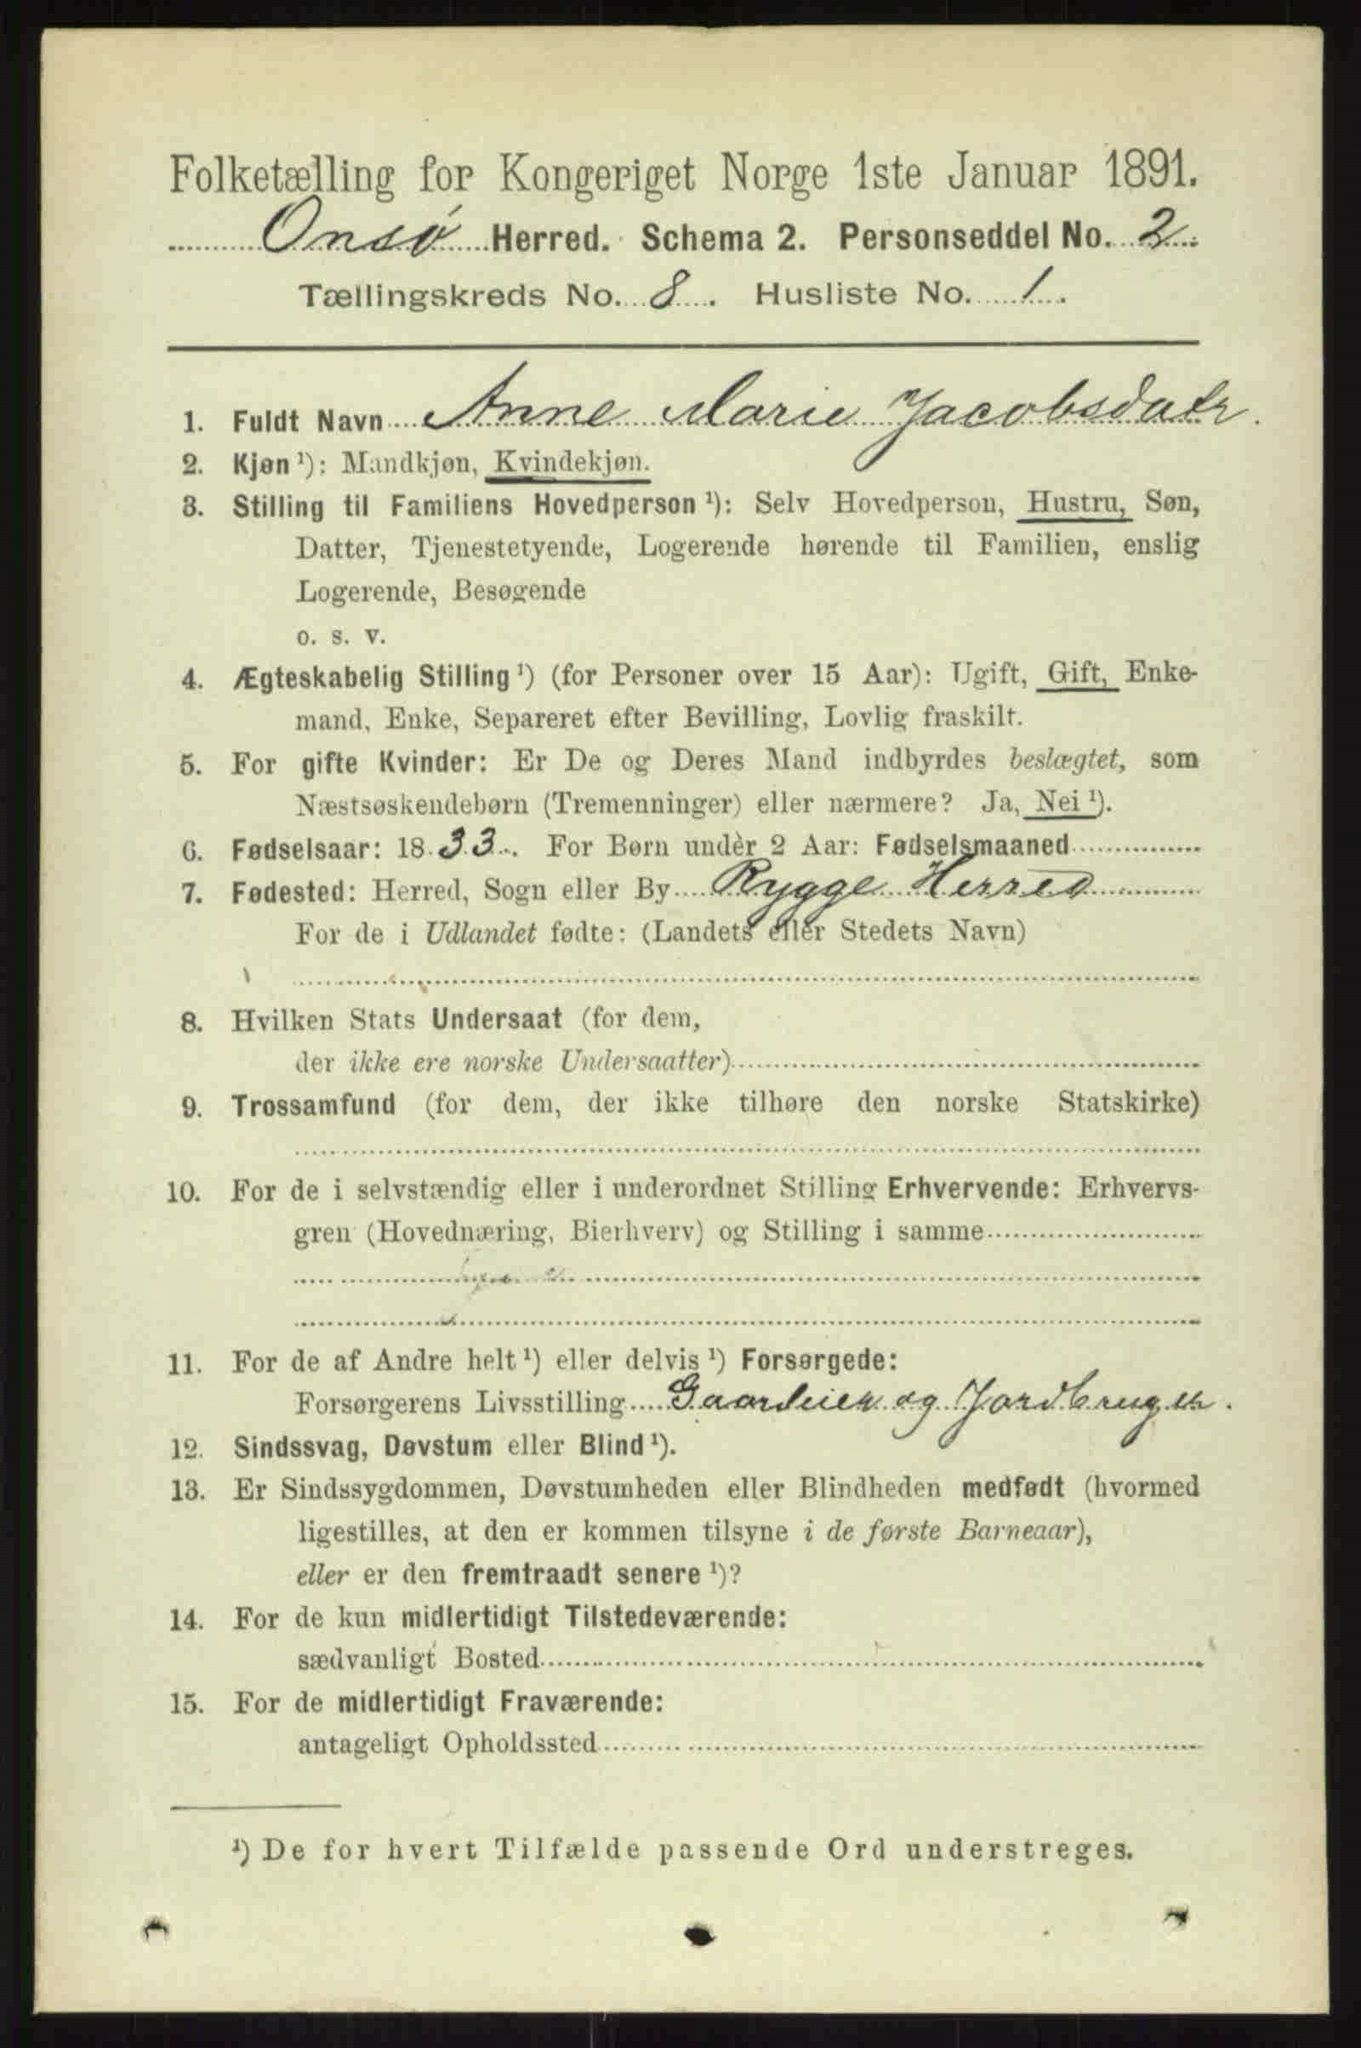 Folketælling for Kongeriget Norge 1ste Januar 1891.
Onsø Herred. Schema 2. Personseddel No. 2.
Tællingskreds No. 8. Husliste No. 1.
1. Fuldt Navn Anne Marie Jacobsdatr.
2. Kjøn ¹): Mandkjøn, Kvindekjøn.
3. Stilling til Familiens Hovedperson ¹): Selv Hovedperson, Hustru, Søn,
Datter, Tjenestetyende, Logerende hørende til Familien, enslig
Logerende, Besøgende
o. s. v.
4. Ægteskabelig Stilling ¹) (for Personer over 15 Aar): Ugift, Gift, Enke-
mand, Enke, Separeret efter Bevilling, Lovlig fraskilt.
5. For gifte Kvinder: Er De og Deres Mand indbyrdes beslægtet, som
Næstsøskendebørn (Tremenninger) eller nærmere? Ja, Nei ¹).
6. Fødselsaar: 1833. For Børn under 2 Aar: Fødselsmaaned
7. Fødested: Herred, Sogn eller By Rygge Herred
For de i Udlandet fødte: (Landets eller Stedets Navn)
8. Hvilken Stats Undersaat (for dem,
der ikke ere norske Undersaatter)
9. Trossamfund (for dem, der ikke tilhøre den norske Statskirke)
10. For de i selvstændig eller i underordnet Stilling Erhvervende: Erhvervs-
gren (Hovednæring, Bierhverv) og Stilling i samme
11. For de af Andre helt ¹) eller delvis ¹) Forsørgede:
Forsørgerens Livsstilling Gaardeier og Jordbruger.
12. Sindssvag, Døvstum eller Blind ¹).
13. Er Sindssygdommen, Døvstumheden eller Blindheden medfødt (hvormed
ligestilles, at den er kommen tilsyne i de første Barneaar),
eller er den fremtraadt senere ¹)?
14. For de kun midlertidigt Tilstedeværende:
sædvanligt Bosted
15. For de midlertidigt Fraværende:
antageligt Opholdssted
¹) De for hvert Tilfælde passende Ord understreges.